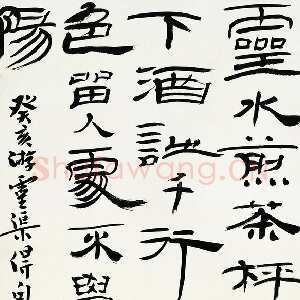 靈水煎茶枰
下酒詩千行
色留人
陽
癸亥游靈渠得句
Shufawang.cn